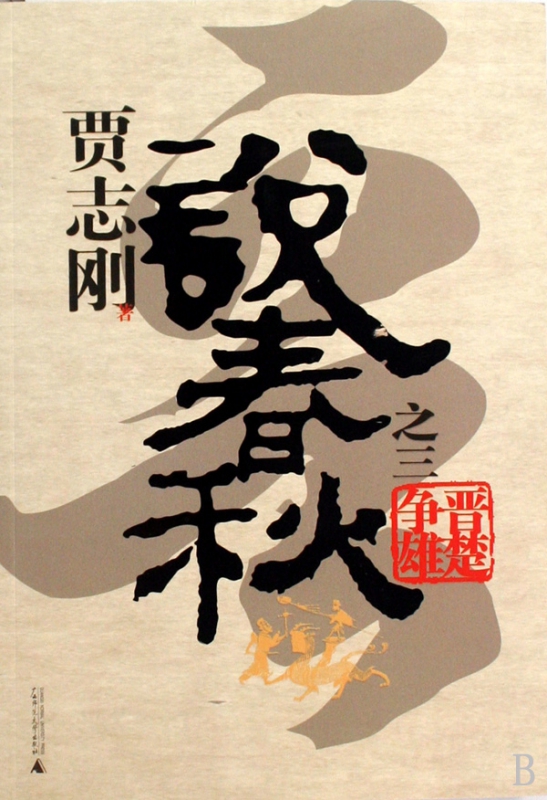 贾志刚
著
說春秋
之三
晋楚
争雄
广西师范大学出版社
B